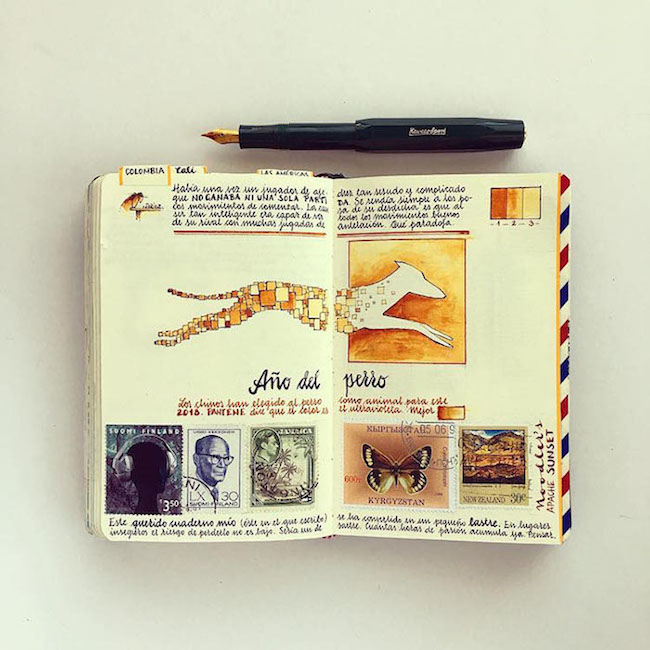 Kaweco Sport
COLOMBIA Cali LAS AMÉRICAS
Había una vez un jugador de aje drez tan sesudo y complicado
que NO GANABA NI UNA SOLA PARTI DA. Se rendía siempre a los po-
cos movimientos de comenzar. La cau sa de su desdicha es que al
ser tan inteligente era capaz de ver todos los movimientos buenos
de su rival con muchas jugadas de antelación. Qué paradoja
- 1 - 2 - 3 -
Año del perro
Los chinos han elegido al perro como animal para este
2018. PANTENE dice que el color es el ultravioleta. Mejor
SUOMI FINLAND
3,50
LX 30
SUOMI FINLAND
JAMAICA
КЫРГЫЗСТАН
05 06 9
600т
KYRGYZSTAN
NEW ZEALAND 30c
Noodler's
APACHE SUNSET
Este querido cuaderno mío (éste en el que escribo) se ha convertido en un pequeño lastre. En lugares
inseguros el riesgo de perderlo no es bajo. Sería un de sastre. Cuántas horas de pasión acumula ya. Pensar.